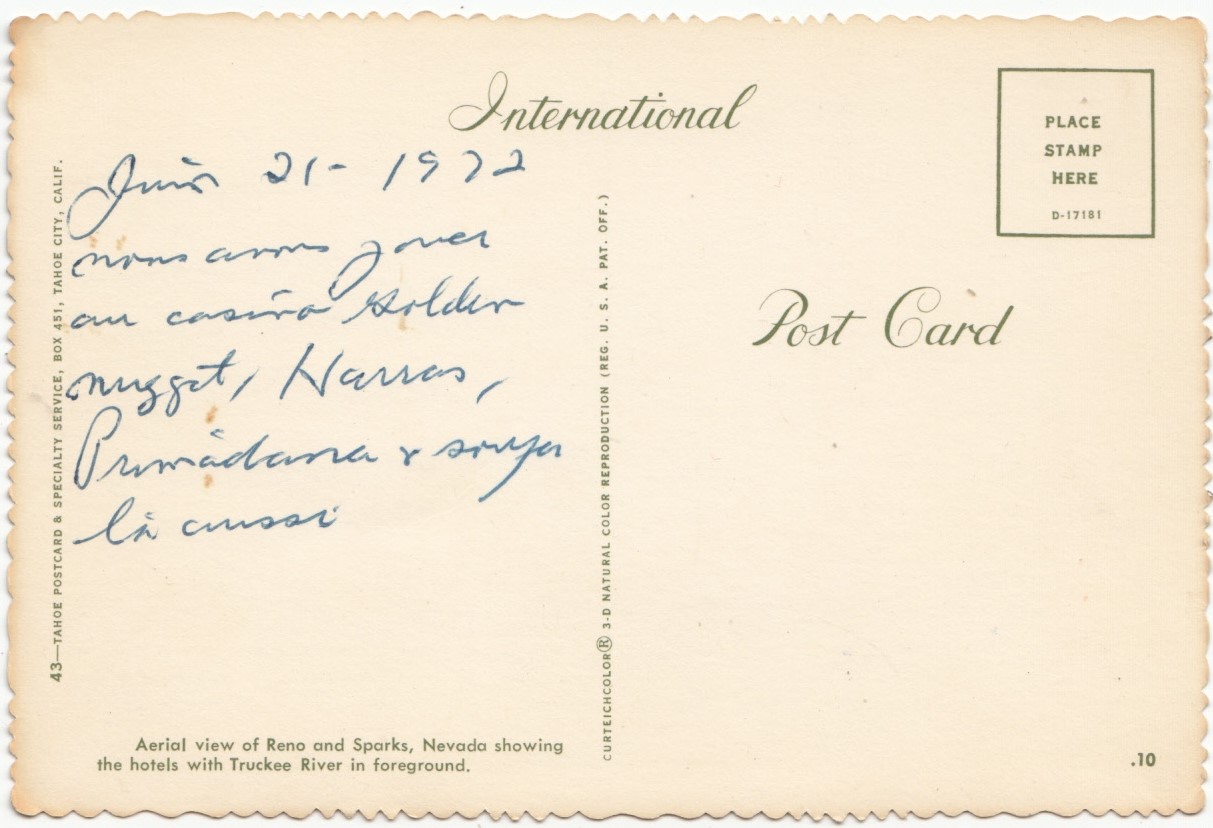 International
PLACE
STAMP
HERE
D-17181
Juin 21 - 1972
nous avons jouer
au casino Golden
nugget, Harras,
Primadana & souper
là aussi
Post Card
43—TAHOE POSTCARD & SPECIALTY SERVICE, BOX 451, TAHOE CITY, CALIF.
CURTEICHCOLOR® 3-D NATURAL COLOR REPRODUCTION (REG. U. S. A. PAT. OFF.)
Aerial view of Reno and Sparks, Nevada showing
the hotels with Truckee River in foreground.
.10